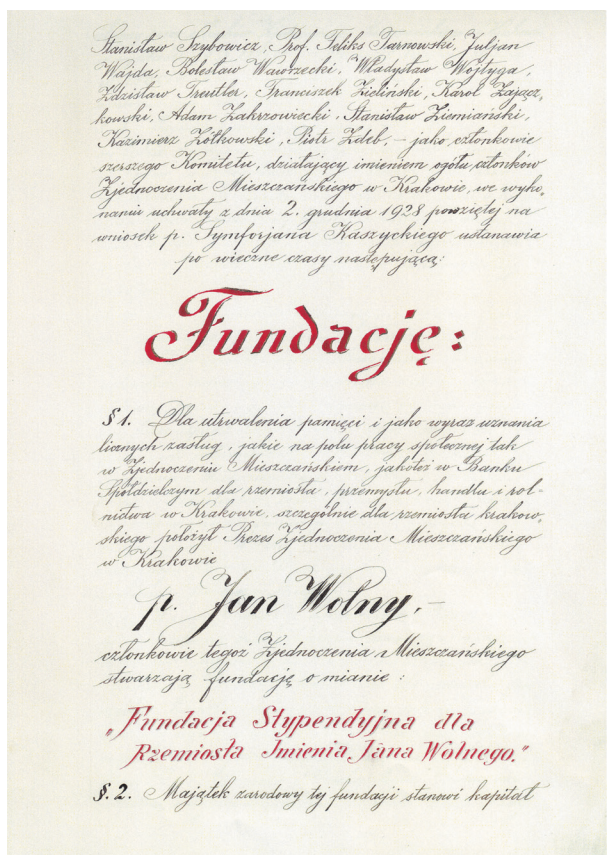 Stanisław Szybowicz, Prof. Feliks Tarnowski, Juljan
Wajda, Bolesław Wawrzecki, Władysław Wojtyga,
Zdzisław Treutler, Franciszek Zieliński, Karol Zającz-
kowski, Adam Zakrzowiecki, Stanisław Ziemiański,
Kazimierz Żółkowski, Piotr Zdeb, – jako członkowie
szerszego Komitetu, działający imieniem ogółu członków
Zjednoczenia Mieszczańskiego w Krakowie, we wyko-
naniu uchwały z dnia 2. grudnia 1928 powziętej na
wniosek p. Symforjana Kaszyckiego ustanawia
po wieczne czasy następującą:
Fundację:
§ 1. Dla utrwalenia pamięci i jako wyraz uznania
licznych zasług, jakie na polu pracy społecznej tak
w Zjednoczeniu Mieszczańskiem, jakoteż w Banku
Spółdzielczym dla rzemiosła, przemysłu, handlu i rol-
nictwa w Krakowie, szczególnie dla rzemiosła krakow-
skiego położył Prezes Zjednoczenia Mieszczańskiego
w Krakowie
p. Jan Wolny, –
członkowie tegoż Zjednoczenia Mieszczańskiego
stwarzają fundację o mianie :
„Fundacja Stypendyjna dla
Rzemiosła Imienia Jana Wolnego."
§. 2. Majątek zarodowy tej fundacji stanowi kapitał